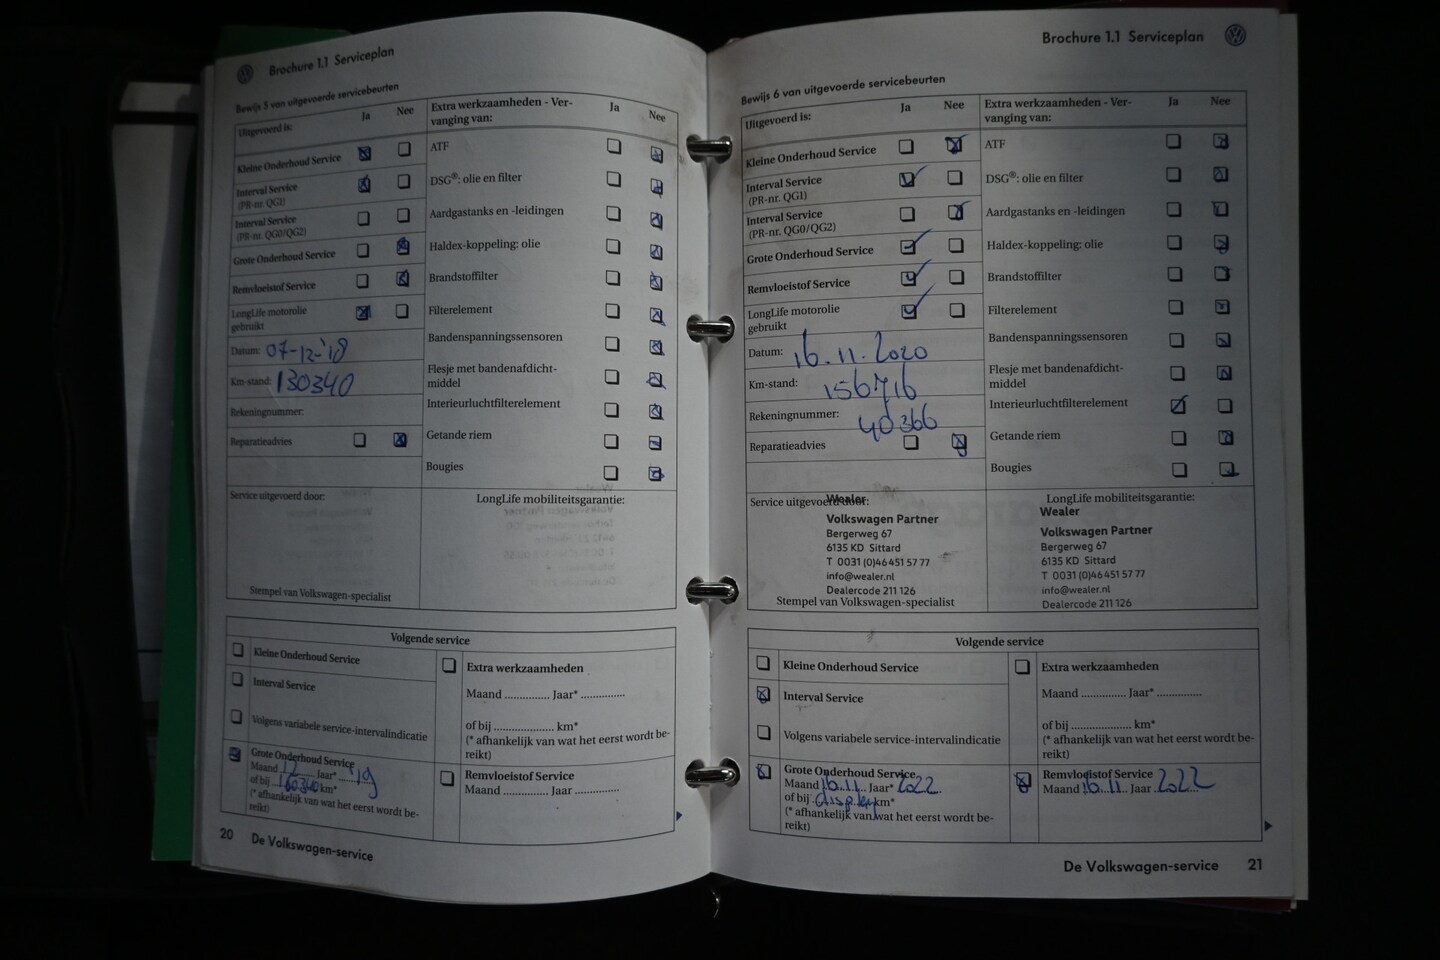 Brochure 1.1 Serviceplan
Bewijs 5 van uitgevoerde servicebeurten
Uitgevoerd is:
Ja
Nee
Kleine Onderhoud Service
Interval Service
(PR-nr. QG1)
Interval Service
(PR-nr. QG0/QG2)
Grote Onderhoud Service
Remvloeistof Service
LongLife motorolie
gebruikt
Datum: 07-12-'18
Km-stand: 130340
Rekeningnummer:
Reparatieadvies
Extra werkzaamheden - Ver-
vanging van:
Ja
Nee
ATF
DSG®: olie en filter
Aardgastanks en -leidingen
Haldex-koppeling: olie
Brandstoffilter
Filterelement
Bandenspanningssensoren
Flesje met bandenafdicht-
middel
Interieurluchtfilterelement
Getande riem
Bougies
Service uitgevoerd door:
LongLife mobiliteitsgarantie:
Stempel van Volkswagen-specialist
Volgende service
Kleine Onderhoud Service
Interval Service
Volgens variabele service-intervalindicatie
Grote Onderhoud Service
Maand 12 Jaar* '19
of bij 160340 km*
(* afhankelijk van wat het eerst wordt be-
reikt)
Extra werkzaamheden
Maand ............... Jaar* ..............
of bij .................... km*
(* afhankelijk van wat het eerst wordt be-
reikt)
Remvloeistof Service
Maand ............... Jaar ...............
20 De Volkswagen-service
Brochure 1.1 Serviceplan
Bewijs 6 van uitgevoerde servicebeurten
Uitgevoerd is:
Ja
Nee
Kleine Onderhoud Service
Interval Service
(PR-nr. QG1)
Interval Service
(PR-nr. QG0/QG2)
Grote Onderhoud Service
Remvloeistof Service
LongLife motorolie
gebruikt
Datum: 16.11.2020
Km-stand: 156716
Rekeningnummer: 40366
Reparatieadvies
Extra werkzaamheden - Ver-
vanging van:
Ja
Nee
ATF
DSG®: olie en filter
Aardgastanks en -leidingen
Haldex-koppeling: olie
Brandstoffilter
Filterelement
Bandenspanningssensoren
Flesje met bandenafdicht-
middel
Interieurluchtfilterelement
Getande riem
Bougies
Service uitgevoerd door:
Wealer
Volkswagen Partner
Bergerweg 67
6135 KD Sittard
T 0031 (0)46 451 57 77
info@wealer.nl
Dealercode 211 126
Stempel van Volkswagen-specialist
LongLife mobiliteitsgarantie:
Wealer
Volkswagen Partner
Bergerweg 67
6135 KD Sittard
T 0031 (0)46 451 57 77
info@wealer.nl
Dealercode 211 126
Volgende service
Kleine Onderhoud Service
Interval Service
Volgens variabele service-intervalindicatie
Grote Onderhoud Service
Maand 16.11 Jaar* 2022
of bij display km*
(* afhankelijk van wat het eerst wordt be-
reikt)
Extra werkzaamheden
Maand ............... Jaar* ...............
of bij .................... km*
(* afhankelijk van wat het eerst wordt be-
reikt)
Remvloeistof Service
Maand 16.11 Jaar 2022
De Volkswagen-service 21